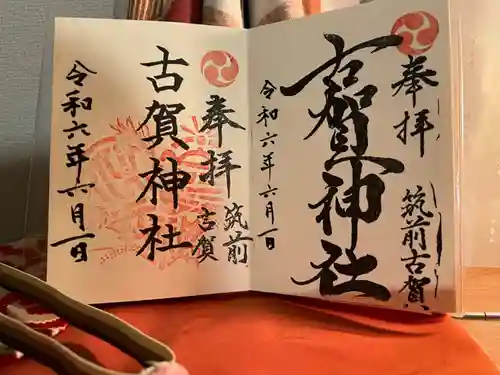 奉拝
筑前古賀
古賀神社
令和六年六月一日
奉拝
筑前
古賀
古賀神社
令和六年六月一日